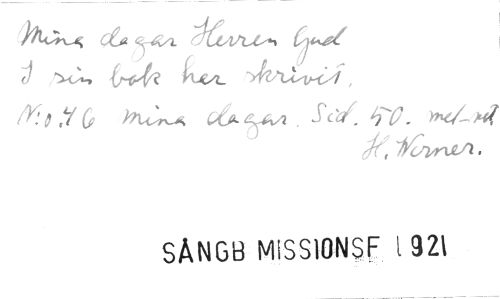 Mina dagar Herren Gud
I sin bok har skrivit.
N:o 46 Mina dagar. Sid. 50.
H. Werner.
SÅNGB MISSIONSF 1921